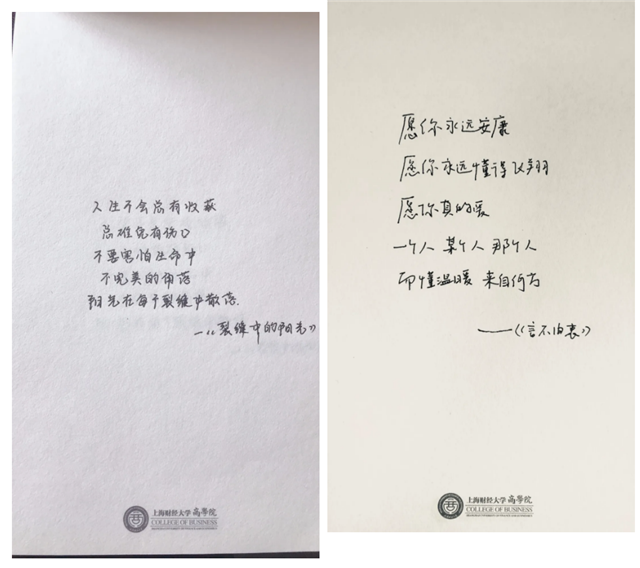 人生不会总有收获
总难免有伤口
不要害怕生命中
不完美的角落
阳光在每个裂缝中散落
—《裂缝中的阳光》
上海财经大学 商学院
COLLEGE OF BUSINESS
愿你永远安康
愿你永远懂得飞翔
愿你真的爱
一个人 某个人 那个人
而懂温暖 来自何方
——《言不由衷》
上海财经大学 商学院
COLLEGE OF BUSINESS